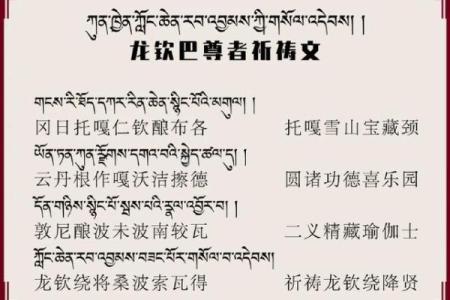 ཀུན་ཁྱེན་ཀློང་ཆེན་རབ་འབྱམས་ཀྱི་གསོལ་འདེབས། །
龙钦巴尊者祈祷文
གངས་རི་ཐོད་དཀར་རིན་ཆེན་སྙིང་པོའི་མགུལ། །
冈日托嘎仁钦酿布各 托嘎雪山宝藏颈
ཡོན་ཏན་ཀུན་རྫོགས་དགའ་བའི་སྐྱེད་ཚལ་དུ། །
云丹根作嘎沃洁擦德 圆诸功德喜乐园
དོན་གཉིས་སྙིང་པོ་སྦས་པའི་རྣལ་འབྱོར་བ། །
敦尼酿波未波南较瓦 二义精藏瑜伽士
ཀློང་ཆེན་རབ་འབྱམས་བཟང་པོར་གསོལ་བ་འདེབས།
龙钦绕将桑波索瓦得 祈祷龙钦绕降贤